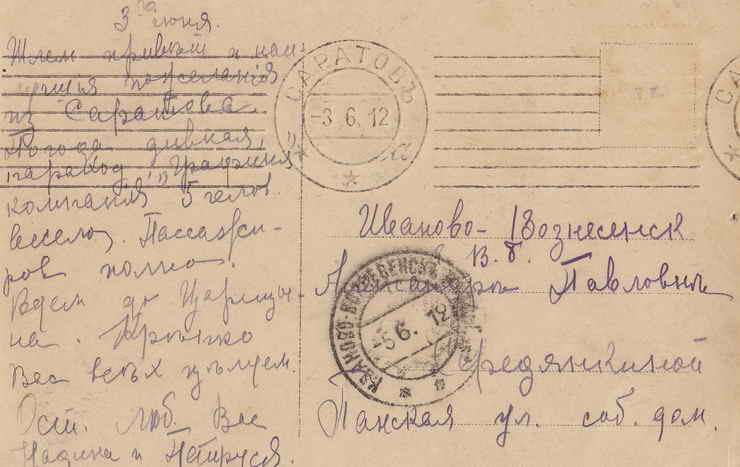 3го июня.
Шлем привет и наи-
лучшія пожеланія
из Саратова.
Погода дивная,
пароход "Графиня",
компанія 5 челов.
весело. Пассажи-
ров полно.
Едем до Царицы-
на. Крепко
Вас всѣх цѣлуем.
Ост. люб. Вас
Надина и Петруся.
САРАТОВЪ
-3.6.12
Иваново-Вознесенск
В. г.
Александре Павловнѣ
Федянкиной
Панская ул. соб. дом.
ИВАНОВО-ВОЗНЕСЕНСКЪ
-5 6. 12
САРАТ